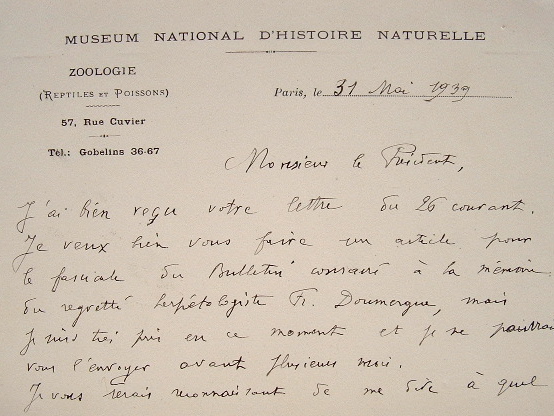 MUSEUM NATIONAL D'HISTOIRE NATURELLE
ZOOLOGIE
(REPTILES ET POISSONS)
57, Rue Cuvier
Tél.: Gobelins 36-67
Paris, le 31 Mai 1939
Monsieur le Président,
J'ai bien reçu votre lettre du 26 courant.
Je veux bien vous faire un article pour
le fascicule du Bulletin consacré à la mémoire
du regretté herpétologiste Fr. Doumergue, mais
je suis très pris en ce moment et je ne pourrai
vous l'envoyer avant plusieurs mois.
Je vous serais reconnaissant de me dire à quel